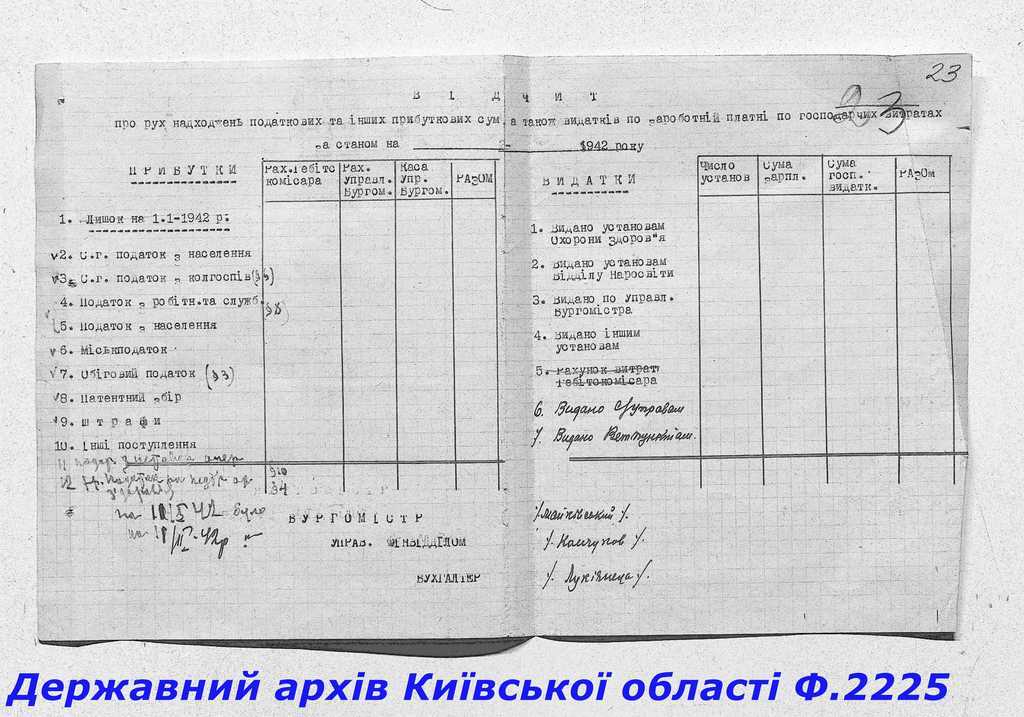 23
23
В І Д Ч И Т
про рух надходжень податкових та інших прибуткових сум, а також видатків по заробітній платні по господарчих витратах
за станом на 2- 1942 року
П Р И Б У Т К И
Рах.Гебітс комісара
Рах. Управл. Бургом.
Каса Упр. Бургом.
РАЗОМ
1. Лишок на 1.1-1942 р:
2. С.г. податок з населення
3. С.г. податок з колгоспів
4. Податок з робітн.та служб.
5. Податок з населення
6. Міськподаток
7. Обіговий податок (§3)
8. Патентний збір
9. Ш т р а ф и
10. Інші поступлення
11
12
В И Д А Т К И
Число установ
Сума зарпл.
Сума госп. видатк.
РАЗОМ
1. Видано установам
Охорони Здоров"я
2. Видано установам
Відділу Наросвіти
3. Видано по Управл.
Бургомістра
4. Видано іншим
установам
5. Рахунок витрат
Гебітокомісара
6. Видано
7. Видано Ветпунктам.
на було
на
Б У Р Г О М І С Т Р /Майківський/.
УПРАВ. ФІНВІДДІЛОМ /. Компуков /.
БУХГАЛТЕР /. Лукіянець /.
Державний архів Київської області Ф.2225